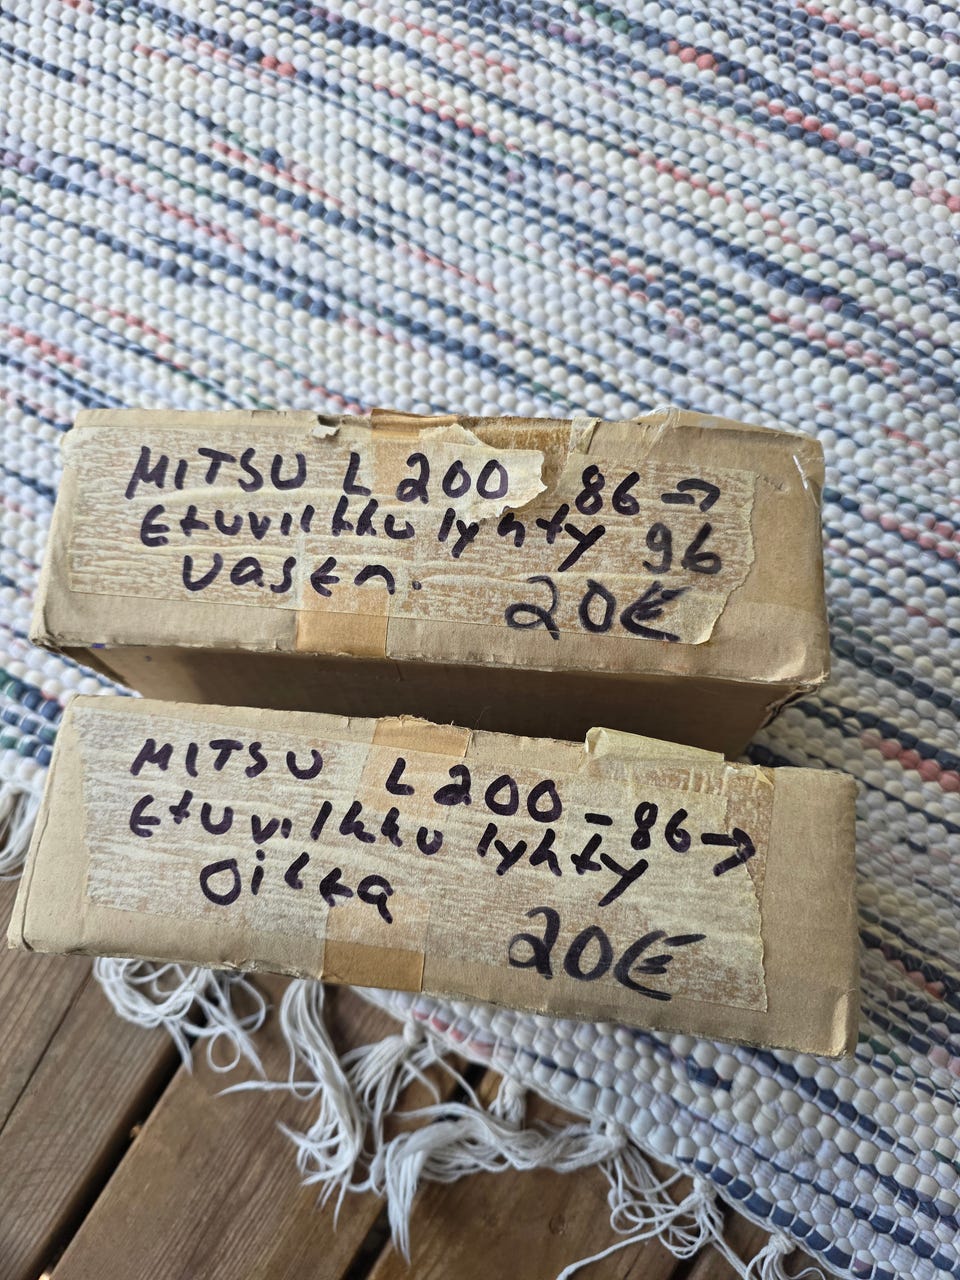 MITSU L 200 86 →
Etuvilkku lyhty 96
vasen.
20€
MITSU L200 - 86 →
Etuvilkku lyhty
Oikea
20€